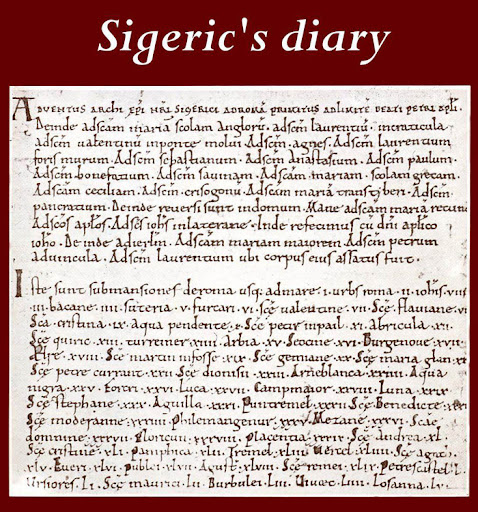 Sigeric's diary
ADVENTUS ARCHI EPI NRI SIGERICI ADROMA PRIMITUS AD LIMITE BEATI PETRI APLI.
Deinde adscam maria scolam angloru. adscm laurentiu. incraticula.
adscm valentinu inponte molui. Adscm. agnes. Adscm laurentium
foris murum. Adscm sebastianum. Adscm anastasium. Adscm paulum.
Adscm bonefatium. Adscm sauinam. Adscam mariam. scolam grecam.
Adscam ceciliam. Adscm. crisogonu. Adscam maria transtyberi. Adscm.
pancratium. Deinde reversi sunt indomum. Mane adscam maria rotun
Adscos aplos. Adscs iohs inlaterane. Inde refecimus cu dn aplico
ioho. Deinde adierlm. Adscam mariam maiorem Adscm petrum
aduincula. Adscm laurentium ubi corpus eius assatus fuit.
Iste sunt submansiones deroma usq; admare. i. urbs roma. ii iohis. viiii
iii bacane. iiii suteria. v furcari. vi sce valentine. vii Sce. flauiane. viii
Sca cristina. ix aqua pendente. x Sce petir inpail. xi abricula. xii.
Sce quiric. xiii. turreiner. xiiii. Arbia. xv Seocine. xvi Burgenove. xvii
Aelse. xviii. Sce martin infosse. xix Sce gemiane. xx Sce maria glan. xxi
Sce petre currant. xxii Sce dionisii. xxiii. Arneblanca. xxiiii Aqua
nigra. xxv. forcri. xxvi. Luca. xxvii. Campmaior. xxviii Luna. xxix
Sce stephane. xxx. Aguilla. xxxi. Puntremel. xxxii Sce Benedicte. xxxiii
Sce moderanne. xxxiiii Philemangenur. xxxv. Metane. xxxvi. Scae
domnine. xxxvii. floricun. xxxviii. placentia. xxxix. Sce andrea. xl.
Sce cristine. xli. pamphica. xlii. Tremel. xliii Vercel. xliiii. Sce agath.
xlv. Everi. xlvi. publei. xlvii. Agust. xlviii. Sce remei. xlix. petrecastel. l.
Ursiores. li. Sce maurici. lii. Burbulei. liii. Vivaec. liiii. Losanna. lv.